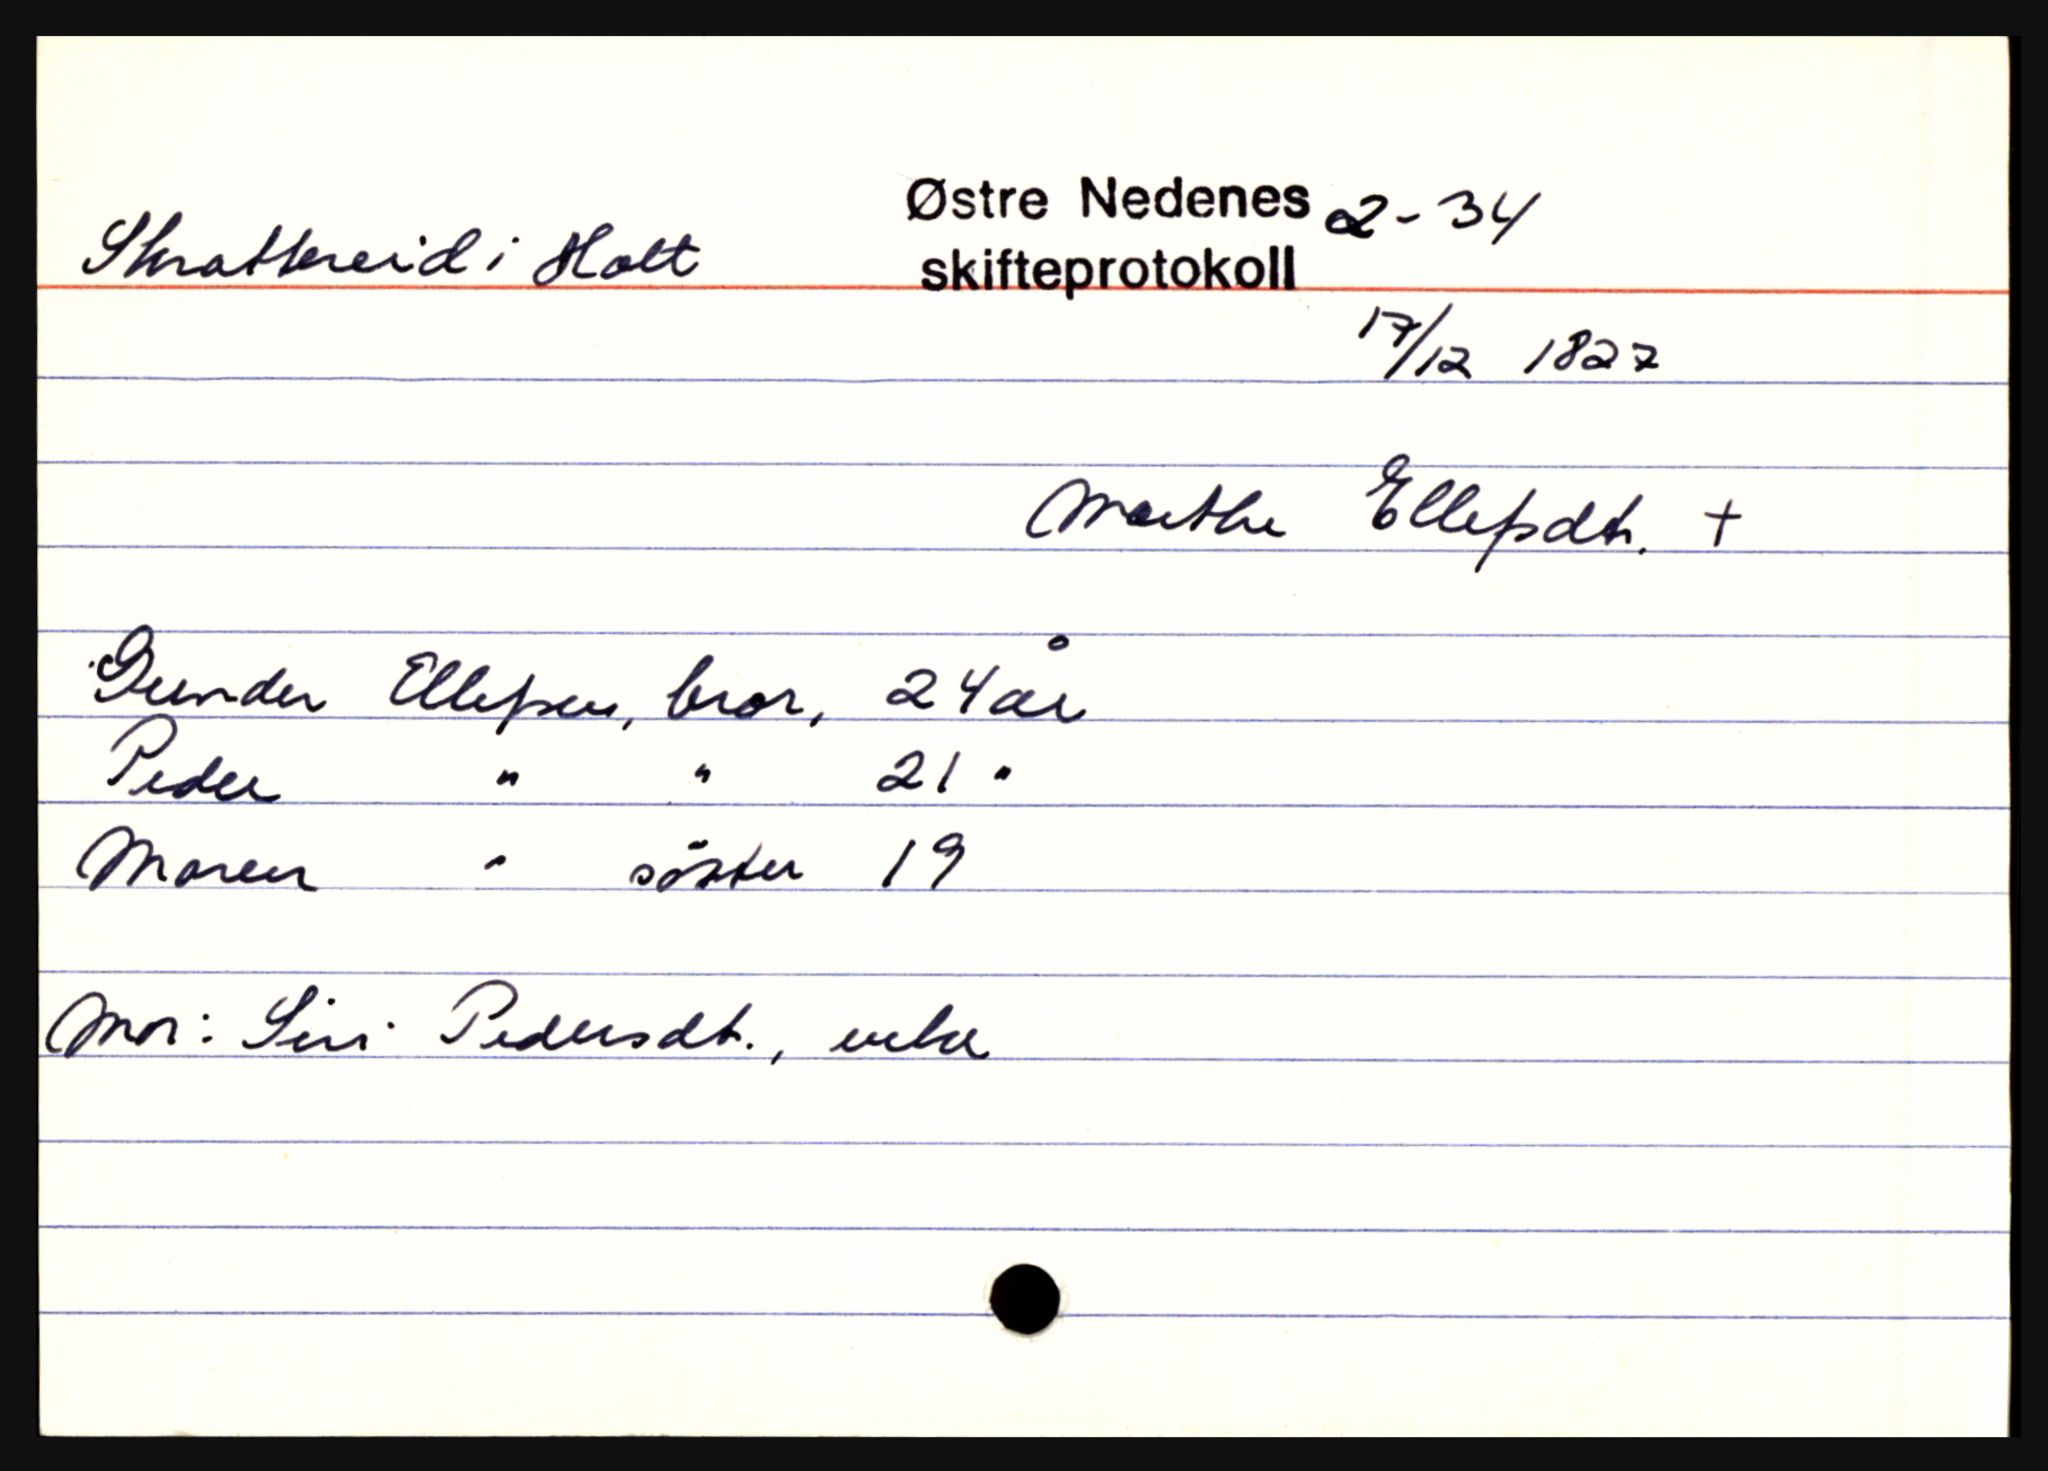 Østre Nedenes 2-34
Skrattereid i Holt skifteprotokoll
17/12 1827
Marthe Ellefsdt. +
Gunder Ellefsen, bror, 24 år
Peder " " 21 "
Maren " søster 19
Mor: Siri Pedersdt., enke